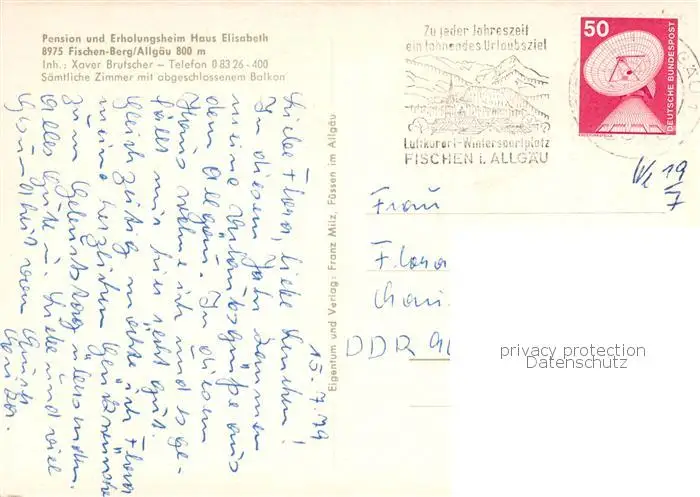 Pension und Erholungsheim Haus Elisabeth
8975 Fischen-Berg/Allgäu 800 m
Inh.: Xaver Brutscher – Telefon 0 83 26 - 400
Sämtliche Zimmer mit abgeschlossenem Balkon
Zu jeder Jahreszeit
ein lohnendes Urlaubsziel
Luftkurort-Wintersportplatz
FISCHEN i. ALLGÄU
50
DEUTSCHE BUNDESPOST
19
7
15.7.79
Liebe Flora, liebe
In diesem Jahr kommen
meine Urlaubsgrüße aus
dem Allgäu. In diesem
Haus wohne ich und es ge-
fällt mir hier recht gut.
Gleichzeitig möchte ich Flora
meine herzlichen Glückwünsche
zum Geburtstag übersenden.
Alles Gute u. Liebe und viel
Gesundheit von
Eigentum und Verlag: Franz Milz, Füssen im Allgäu
Frau
Flora
DDR
privacy protection
Datenschutz